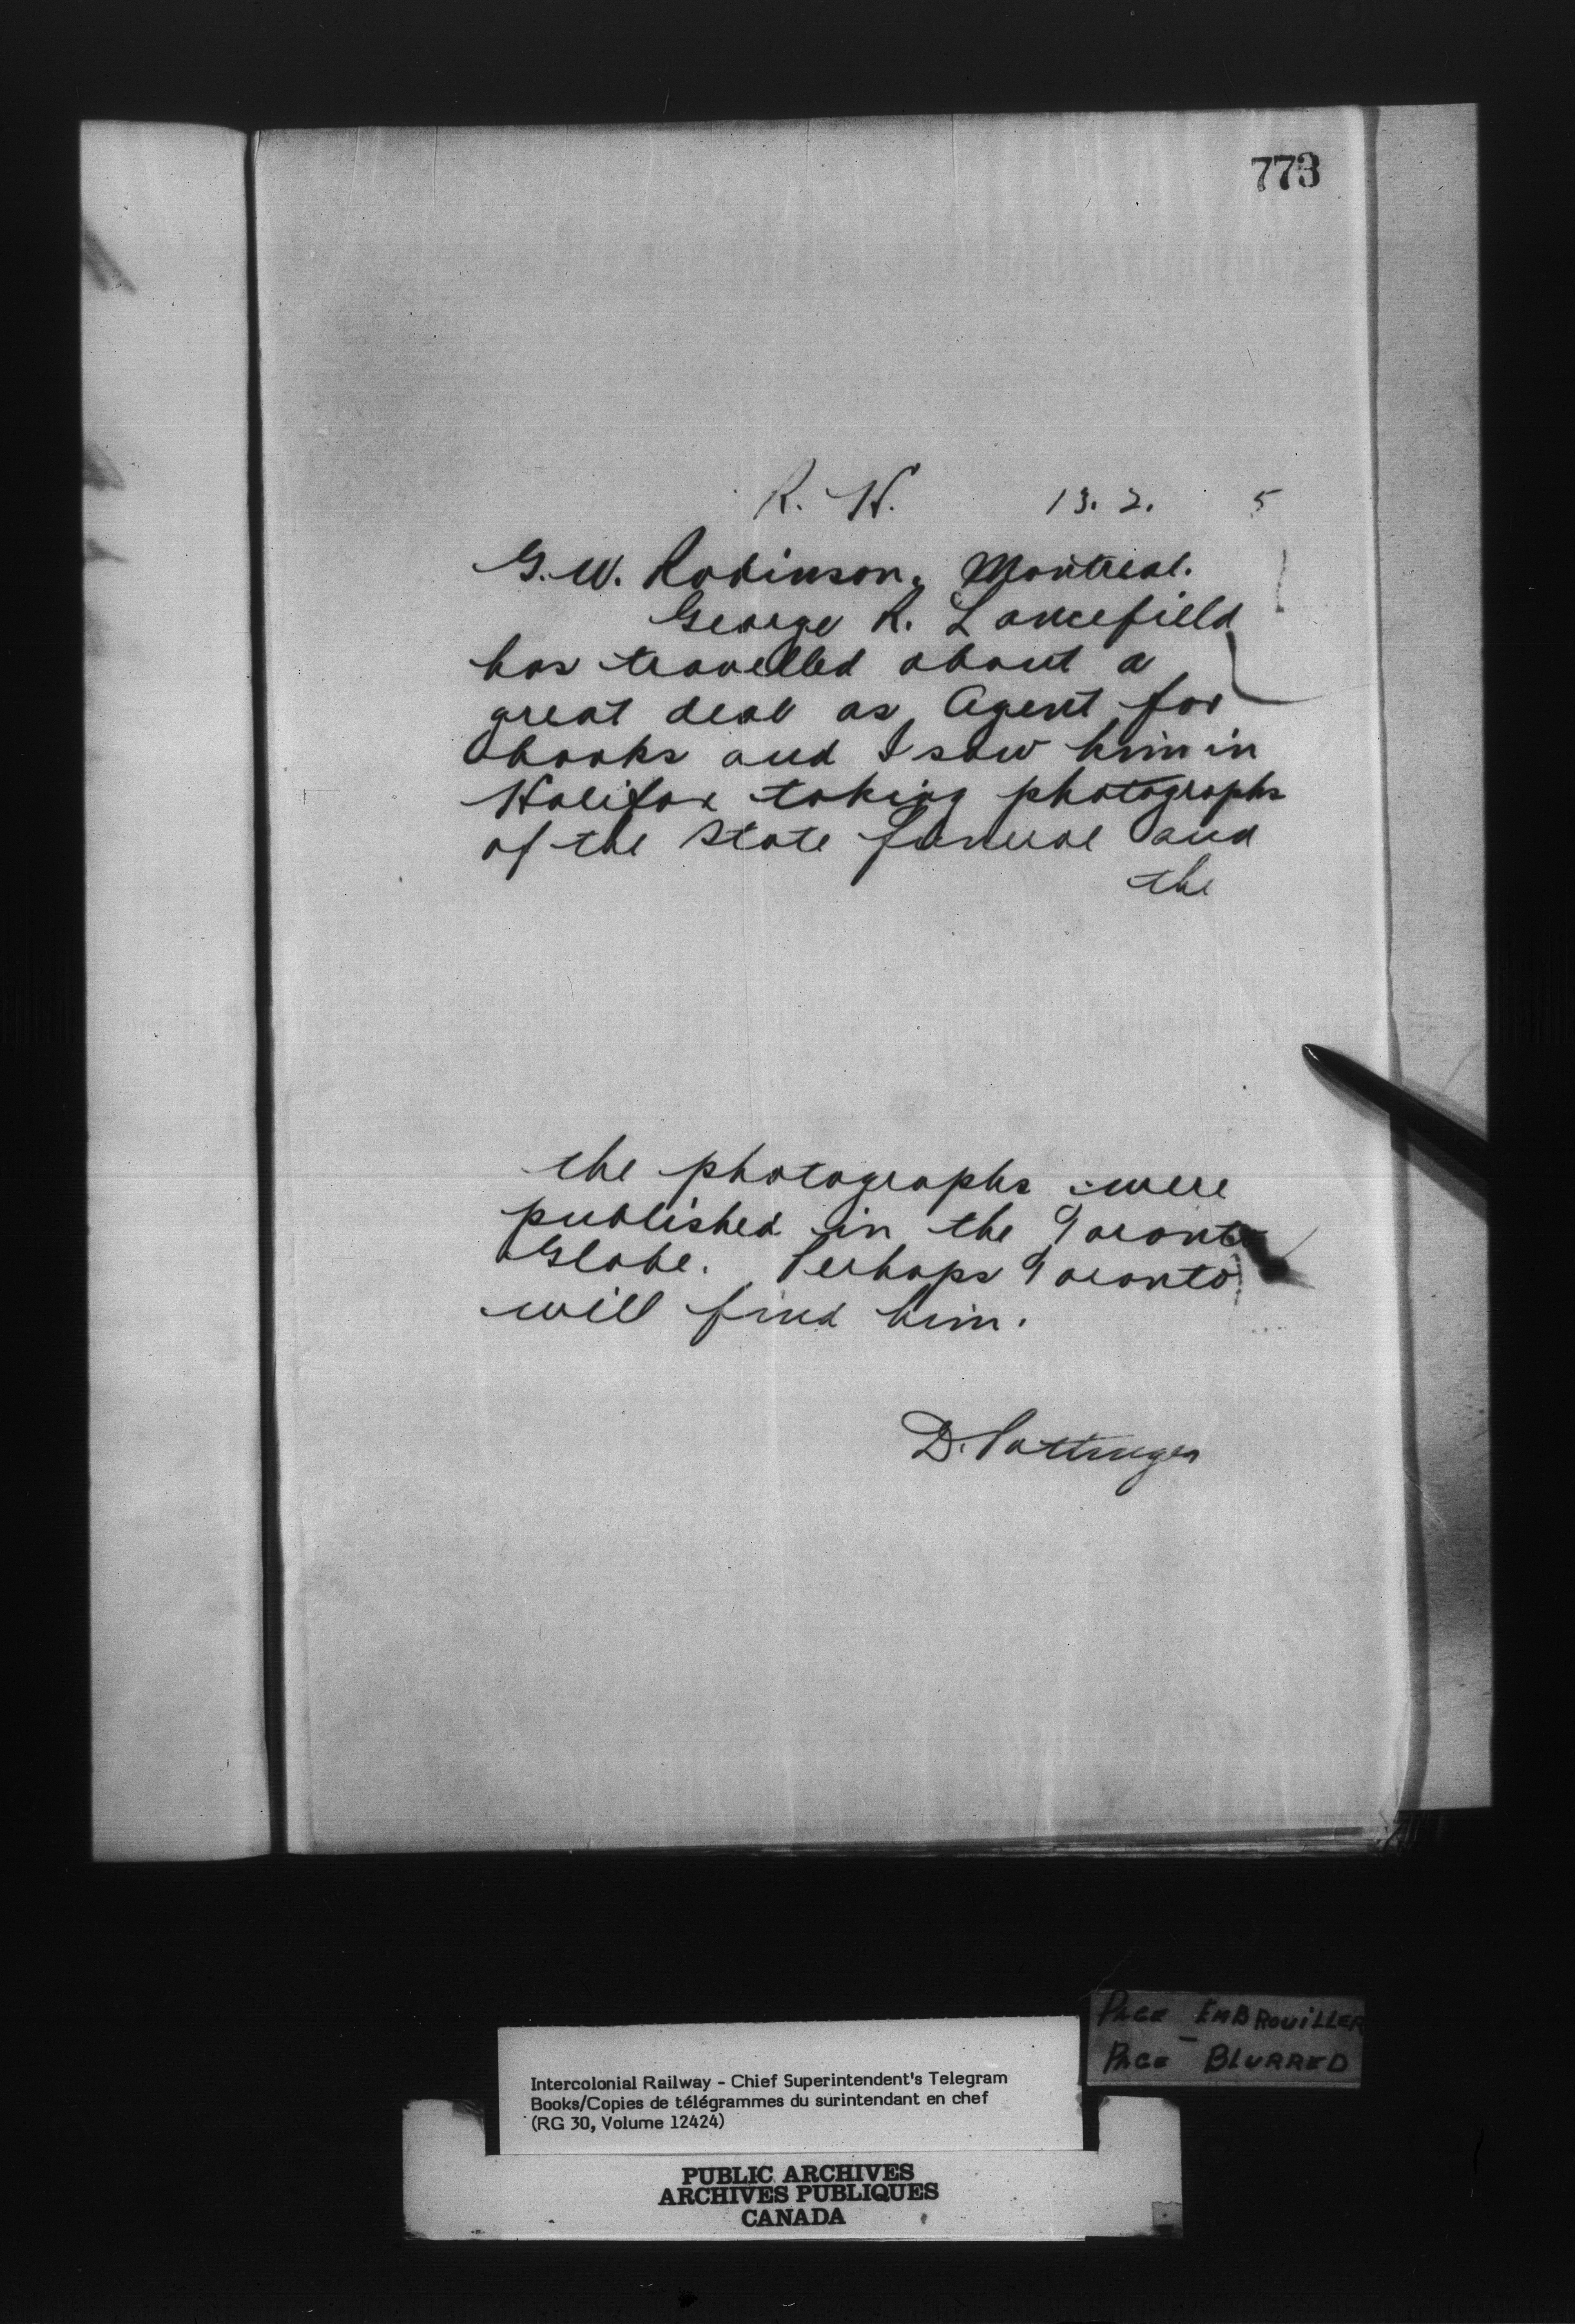 773
R. H. 13. 2. 5
G. W. Robinson. Montreal.
George R. Lancefield
has travelled about a
great deal as Agent for
books and I saw him in
Halifax taking photographs
of the State funeral and
the
the photographs were
published in the Toronto
Globe. Perhaps Toronto
will find him.
D. Pottinger
PAGE EMBROUILLER
PAGE BLURRED
Intercolonial Railway - Chief Superintendent's Telegram
Books/Copies de télégrammes du surintendant en chef
(RG 30, Volume 12424)
PUBLIC ARCHIVES
ARCHIVES PUBLIQUES
CANADA